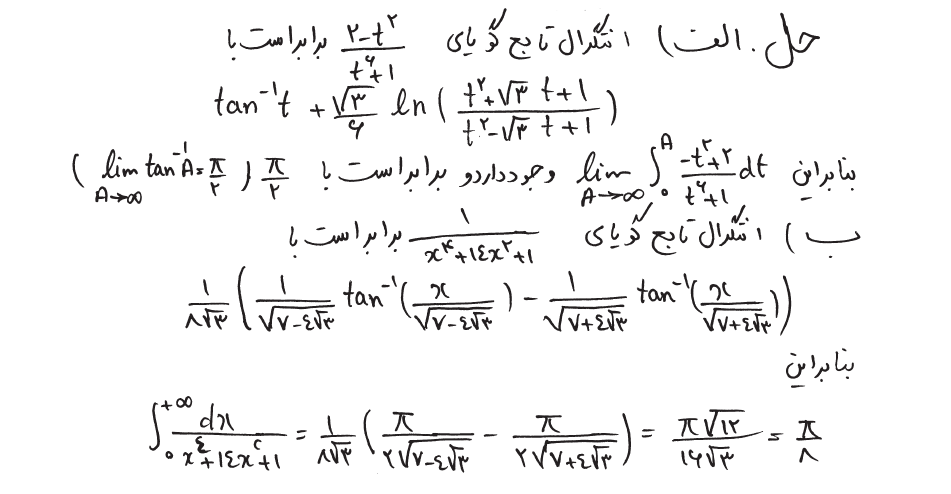 حل. الف) انتگرال تابع گویای (۲-t^۲)/(t^۶+۱) برابر است با
tan^{-۱} t + (√۳/۶) ln((t^۲+√۳ t+۱)/(t^۲-√۳ t+۱))
بنابراین lim_{A→∞} ∫_۰^A (-t^۲+۲)/(t^۶+۱) dt وجود دارد و برابر است با π/۲ (lim_{A→∞} tan^{-۱} A = π/۲)
ب) انتگرال تابع گویای ۱/(x^۴+۱۴x^۲+۱) برابر است با
۱/(۸√۳) (۱/√(۷-۴√۳) tan^{-۱}(x/√(۷-۴√۳)) - ۱/√(۷+۴√۳) tan^{-۱}(x/√(۷+۴√۳)))
بنابراین
∫_۰^{+∞} dx/(x^۴+۱۴x^۲+۱) = ۱/(۸√۳) (π/(۲√(۷-۴√۳)) - π/(۲√(۷+۴√۳))) = π√۱۲/(۱۶√۳) = π/۸